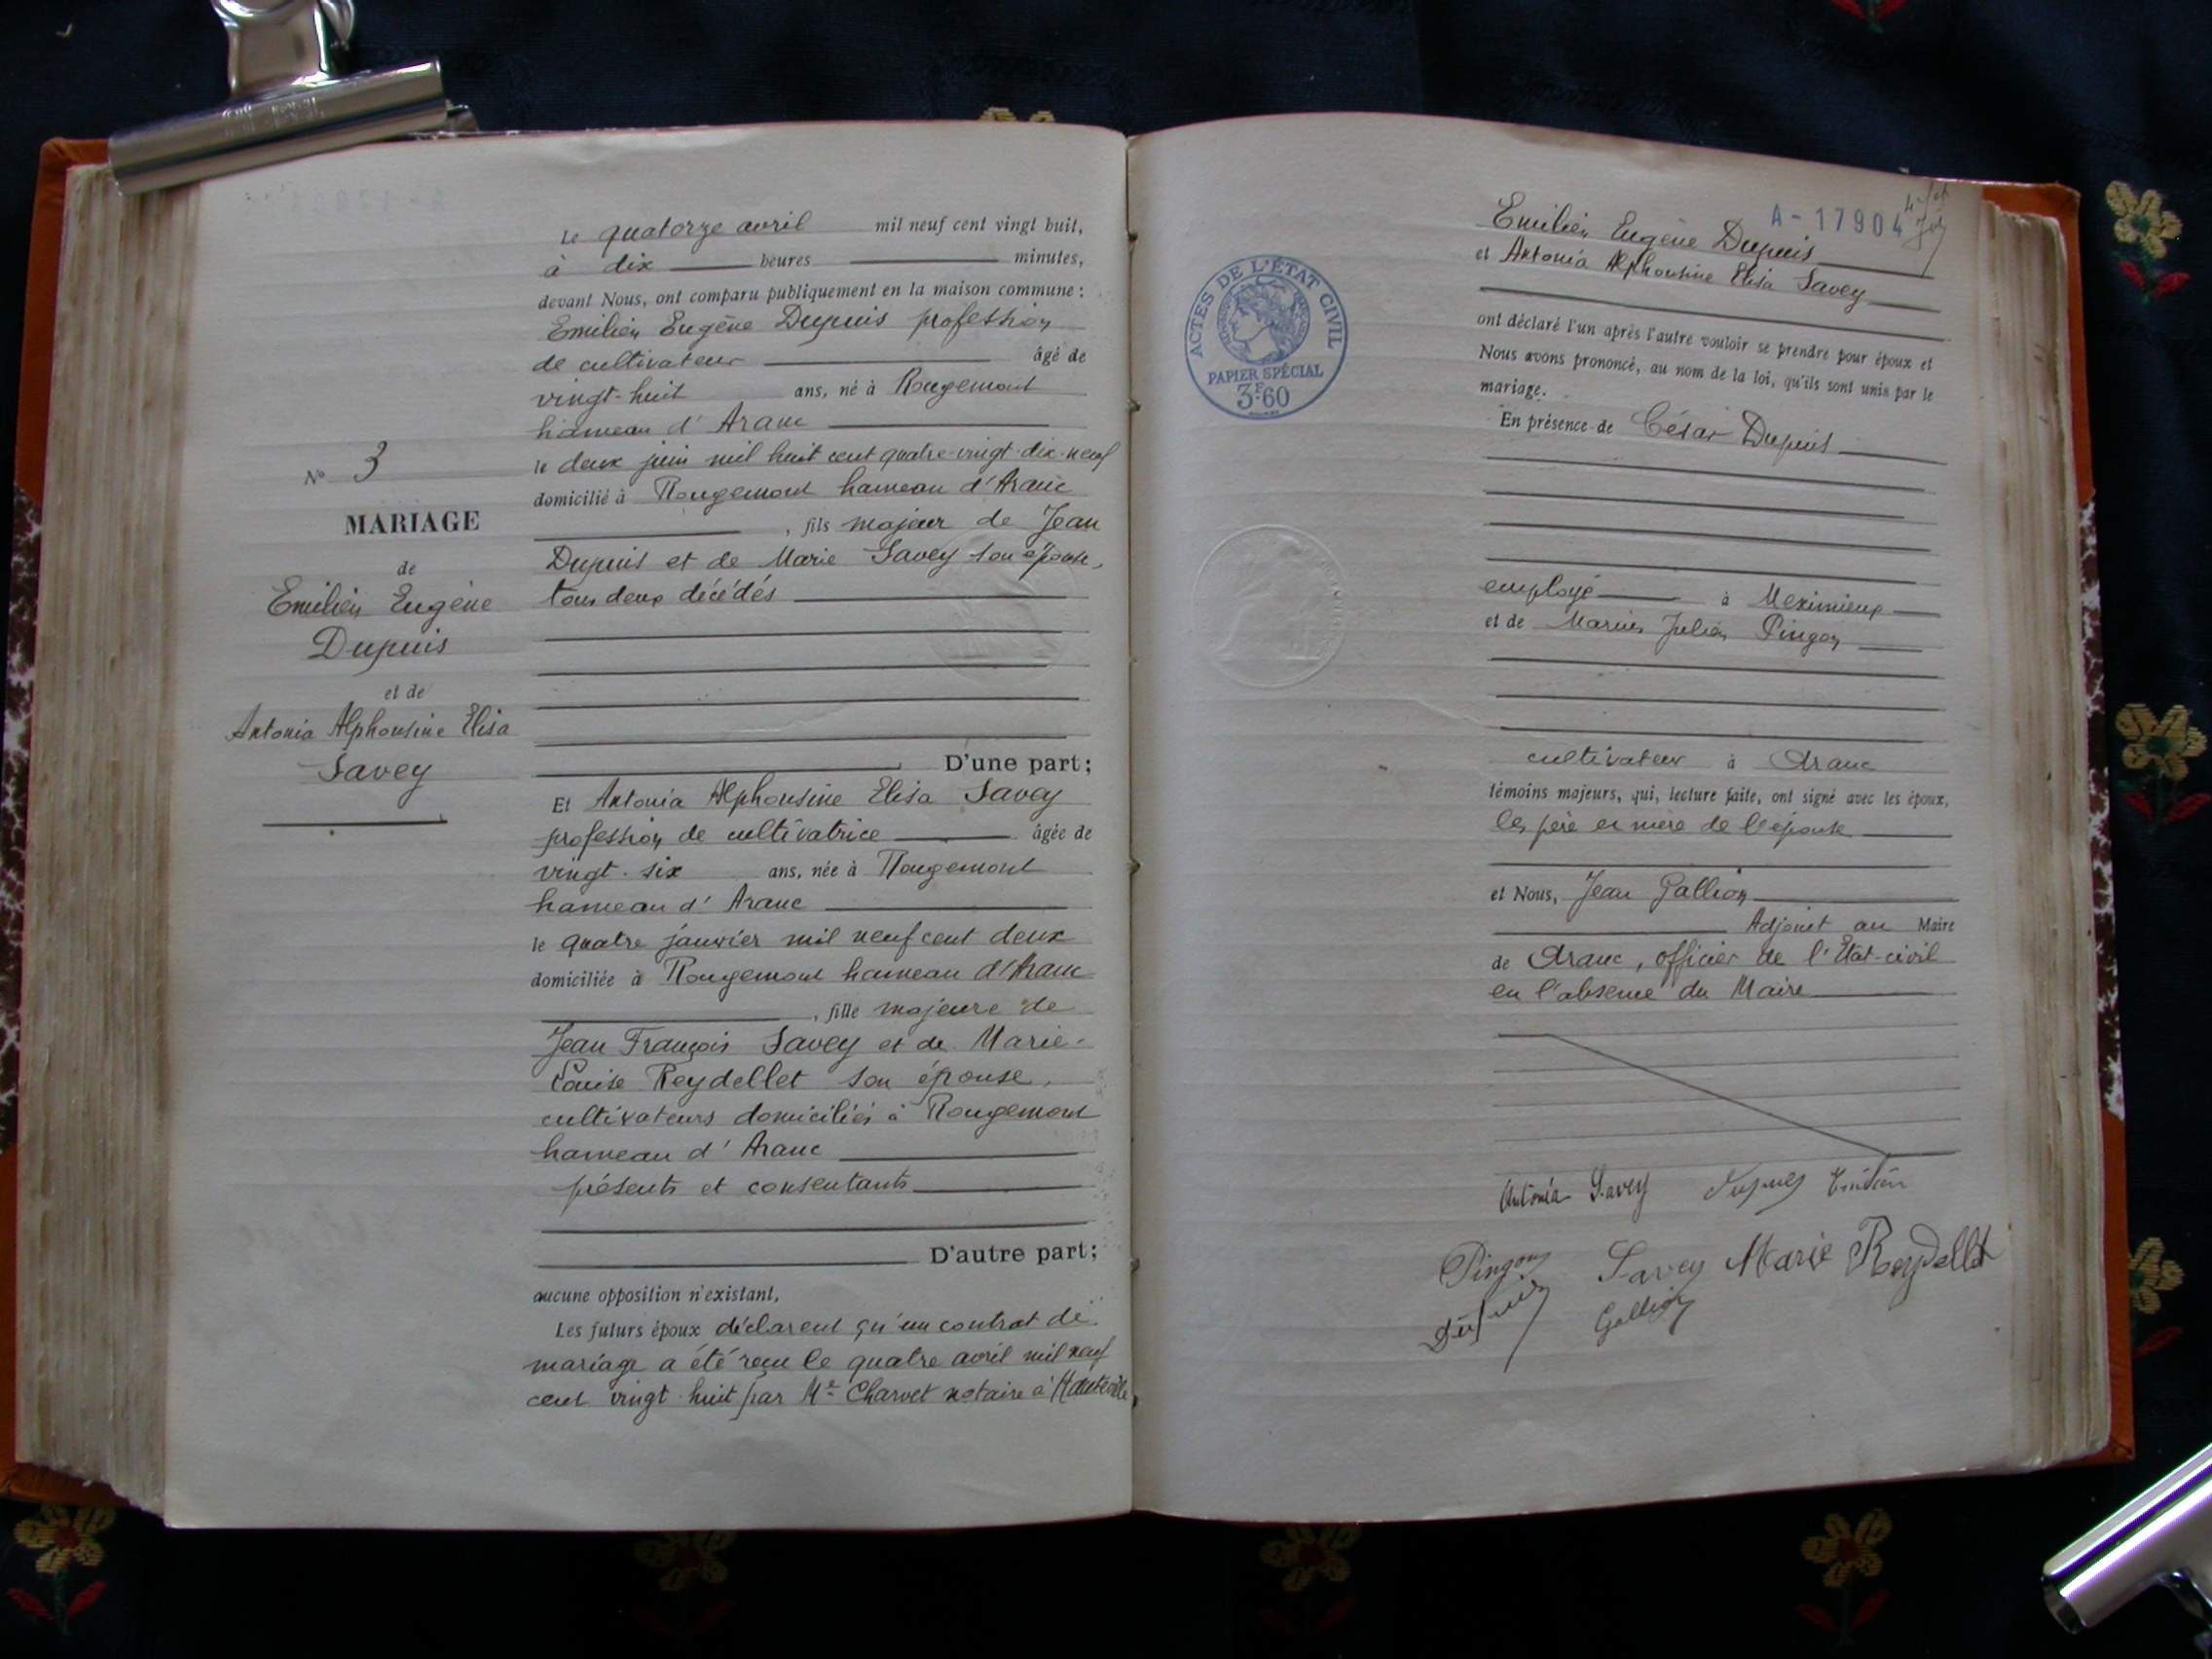 N° 3
MARIAGE
de
Emilien Eugène
Dupuis
et de
Antonia Alphonsine Elisa
Savey
Le quatorze avril mil neuf cent vingt huit,
à dix heures minutes,
devant Nous, ont comparu publiquement en la maison commune :
Emilien Eugène Dupuis profession
de cultivateur âgé de
vingt-huit ans, né à Rougemont
hameau d'Aranc
le deux juin mil huit cent quatre-vingt-dix-neuf
domicilié à Rougemont hameau d'Aranc
, fils majeur de Jean
Dupuis et de Marie Savey son épouse,
tous deux décédés
D'une part;
Et Antonia Alphonsine Elisa Savey
profession de cultivatrice âgée de
vingt-six ans, née à Rougemont
hameau d'Aranc
le quatre janvier mil neuf cent deux
domiciliée à Rougemont hameau d'Aranc
, fille majeure de
Jean François Savey et de Marie-
Louise Reydellet son épouse,
cultivateurs domiciliés à Rougemont
hameau d'Aranc
présents et consentants
D'autre part;
aucune opposition n'existant,
Les futurs époux déclarent qu'un contrat de
mariage a été reçu le quatre avril mil neuf
cent vingt-huit par Me Charvet notaire à Hauteville,
A-17904
ACTES DE L'ÉTAT CIVIL
PAPIER SPÉCIAL
3F60
Emilien Eugène Dupuis
et Antonia Alphonsine Elisa Savey
ont déclaré l'un après l'autre vouloir se prendre pour époux et
Nous avons prononcé, au nom de la loi, qu'ils sont unis par le
mariage.
En présence de César Dupuis
employé à Meximieux
et de Marius Julien Pingon
cultivateur à Aranc
témoins majeurs, qui, lecture faite, ont signé avec les époux,
les père et mère de l'épouse
et Nous, Jean Gallion
Adjoint au Maire
de Aranc, officier de l'Etat-civil
en l'absence du Maire
Antonia Savey Dupuis Emilien
Pingon Savey Marie Reydellet
Dupuis Gallion